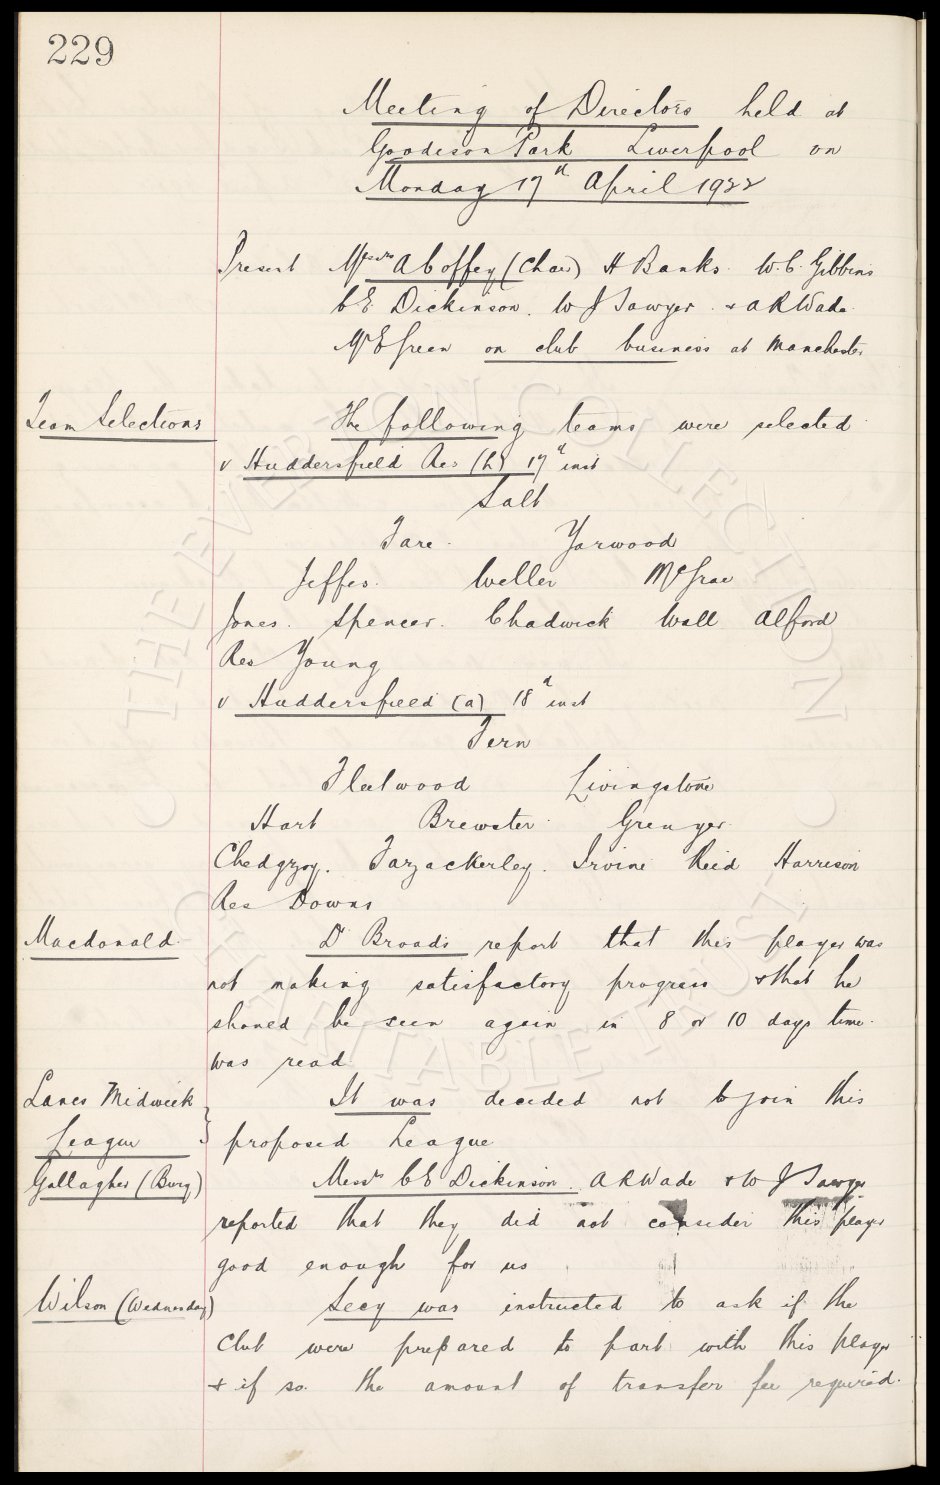 229
Meeting of Directors held at
Goodison Park Liverpool on
Monday 17th April 1922
Present Messrs A Coffey (Chair) H Banks. W.C. Gibbins
C E Dickinson. W J Sawyer. & A R Wade.
Mr E Green on club business at Manchester
Team Selections The following teams were selected
v Huddersfield Res (h) 17th inst
Salt
Tare. Yarwood
Jeffes. Weller McGrae
Jones. Spencer. Chadwick Wall Alford
Res Young
v Huddersfield (a) 18th inst
Fern
Fleetwood Livingstone
Hart Brewster Grenyer.
Chedgzoy. Fazackerley. Irvine Reid Harrison
Res Downs
Macdonald. Dr Broads report that this player was
not making satisfactory progress & that he
should be seen again in 8 or 10 days time.
was read
Lancs Midweek It was decided not to join this
League proposed League
Gallagher (Bury) Messrs C E Dickinson. A R Wade & W J Sawyer
reported that they did not consider this player
good enough for us
Wilson (Wednesday) Secy was instructed to ask if the
Club were prepared to part with this player
& if so. the amount of transfer fee required.
THE EVERTON COLLECTION
CHARITABLE TRUST